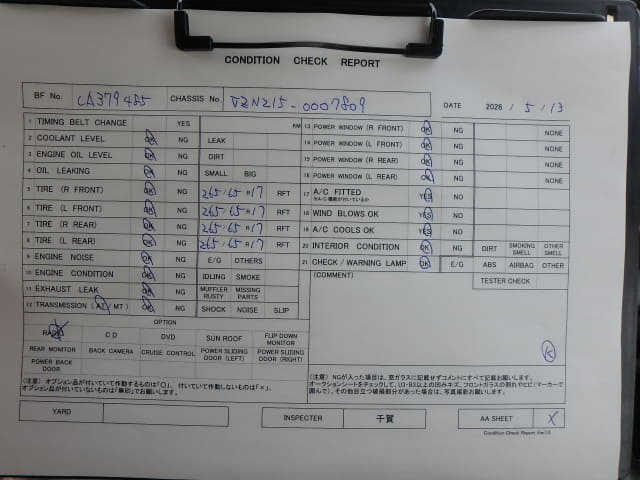 CONDITION CHECK REPORT
BF No. CA379485 CHASSIS No. VZN215-0007809 DATE 2026 / 5 / 13
1 TIMING BELT CHANGE YES KM
2 COOLANT LEVEL OK NG LEAK
3 ENGINE OIL LEVEL OK NG DIRT
4 OIL LEAKING OK NG SMALL BIG
5 TIRE (R FRONT) OK NG 265/65 R17 RFT
6 TIRE (L FRONT) OK NG 265/65 R17 RFT
7 TIRE (R REAR) OK NG 265/65 R17 RFT
8 TIRE (L REAR) OK NG 265/65 R17 RFT
9 ENGINE NOISE OK NG E/G OTHERS
10 ENGINE CONDITION OK NG IDLING SMOKE
11 EXHAUST LEAK OK NG MUFFLER RUSTY MISSING PARTS
12 TRANSMISSION (AT/ MT) OK NG SHOCK NOISE SLIP
13 POWER WINDOW (R FRONT) OK NG NONE
14 POWER WINDOW (L FRONT) OK NG NONE
15 POWER WINDOW (R REAR) OK NG NONE
16 POWER WINDOW (L REAR) OK NG NONE
17 A/C FITTED YES NO
18 WIND BLOWS OK YES NO
19 A/C COOLS OK YES NO
20 INTERIOR CONDITION OK NG DIRT SMOKING SMELL OTHER SMELL
21 CHECK / WARNING LAMP OK E/G ABS AIRBAG OTHER
(COMMENT) TESTER CHECK
K
OPTION
RADIO CD DVD SUN ROOF FLIP DOWN MONITOR
REAR MONITOR BACK CAMERA CRUISE CONTROL POWER SLIDING DOOR (LEFT) POWER SLIDING DOOR (RIGHT)
POWER BACK DOOR
(注意) オプション品が付いていて作動するものは「○」、付いていて作動しないものは「×」、
オプション品が付いていないものは「無印」でお願いします。
(注意) NGが入った項目は、窓ガラスに記載せずコメントにすべて記載お願いします。
オークションシートをチェックして、U3・B3以上の凹みキズ、フロントガラスの割れやヒビ(マーカーで
囲んで)、その他目立つ破損部分があった場合は、写真撮影お願いします。
YARD INSPECTER 千賀 AA SHEET X
Condition Check Report Ver7.0